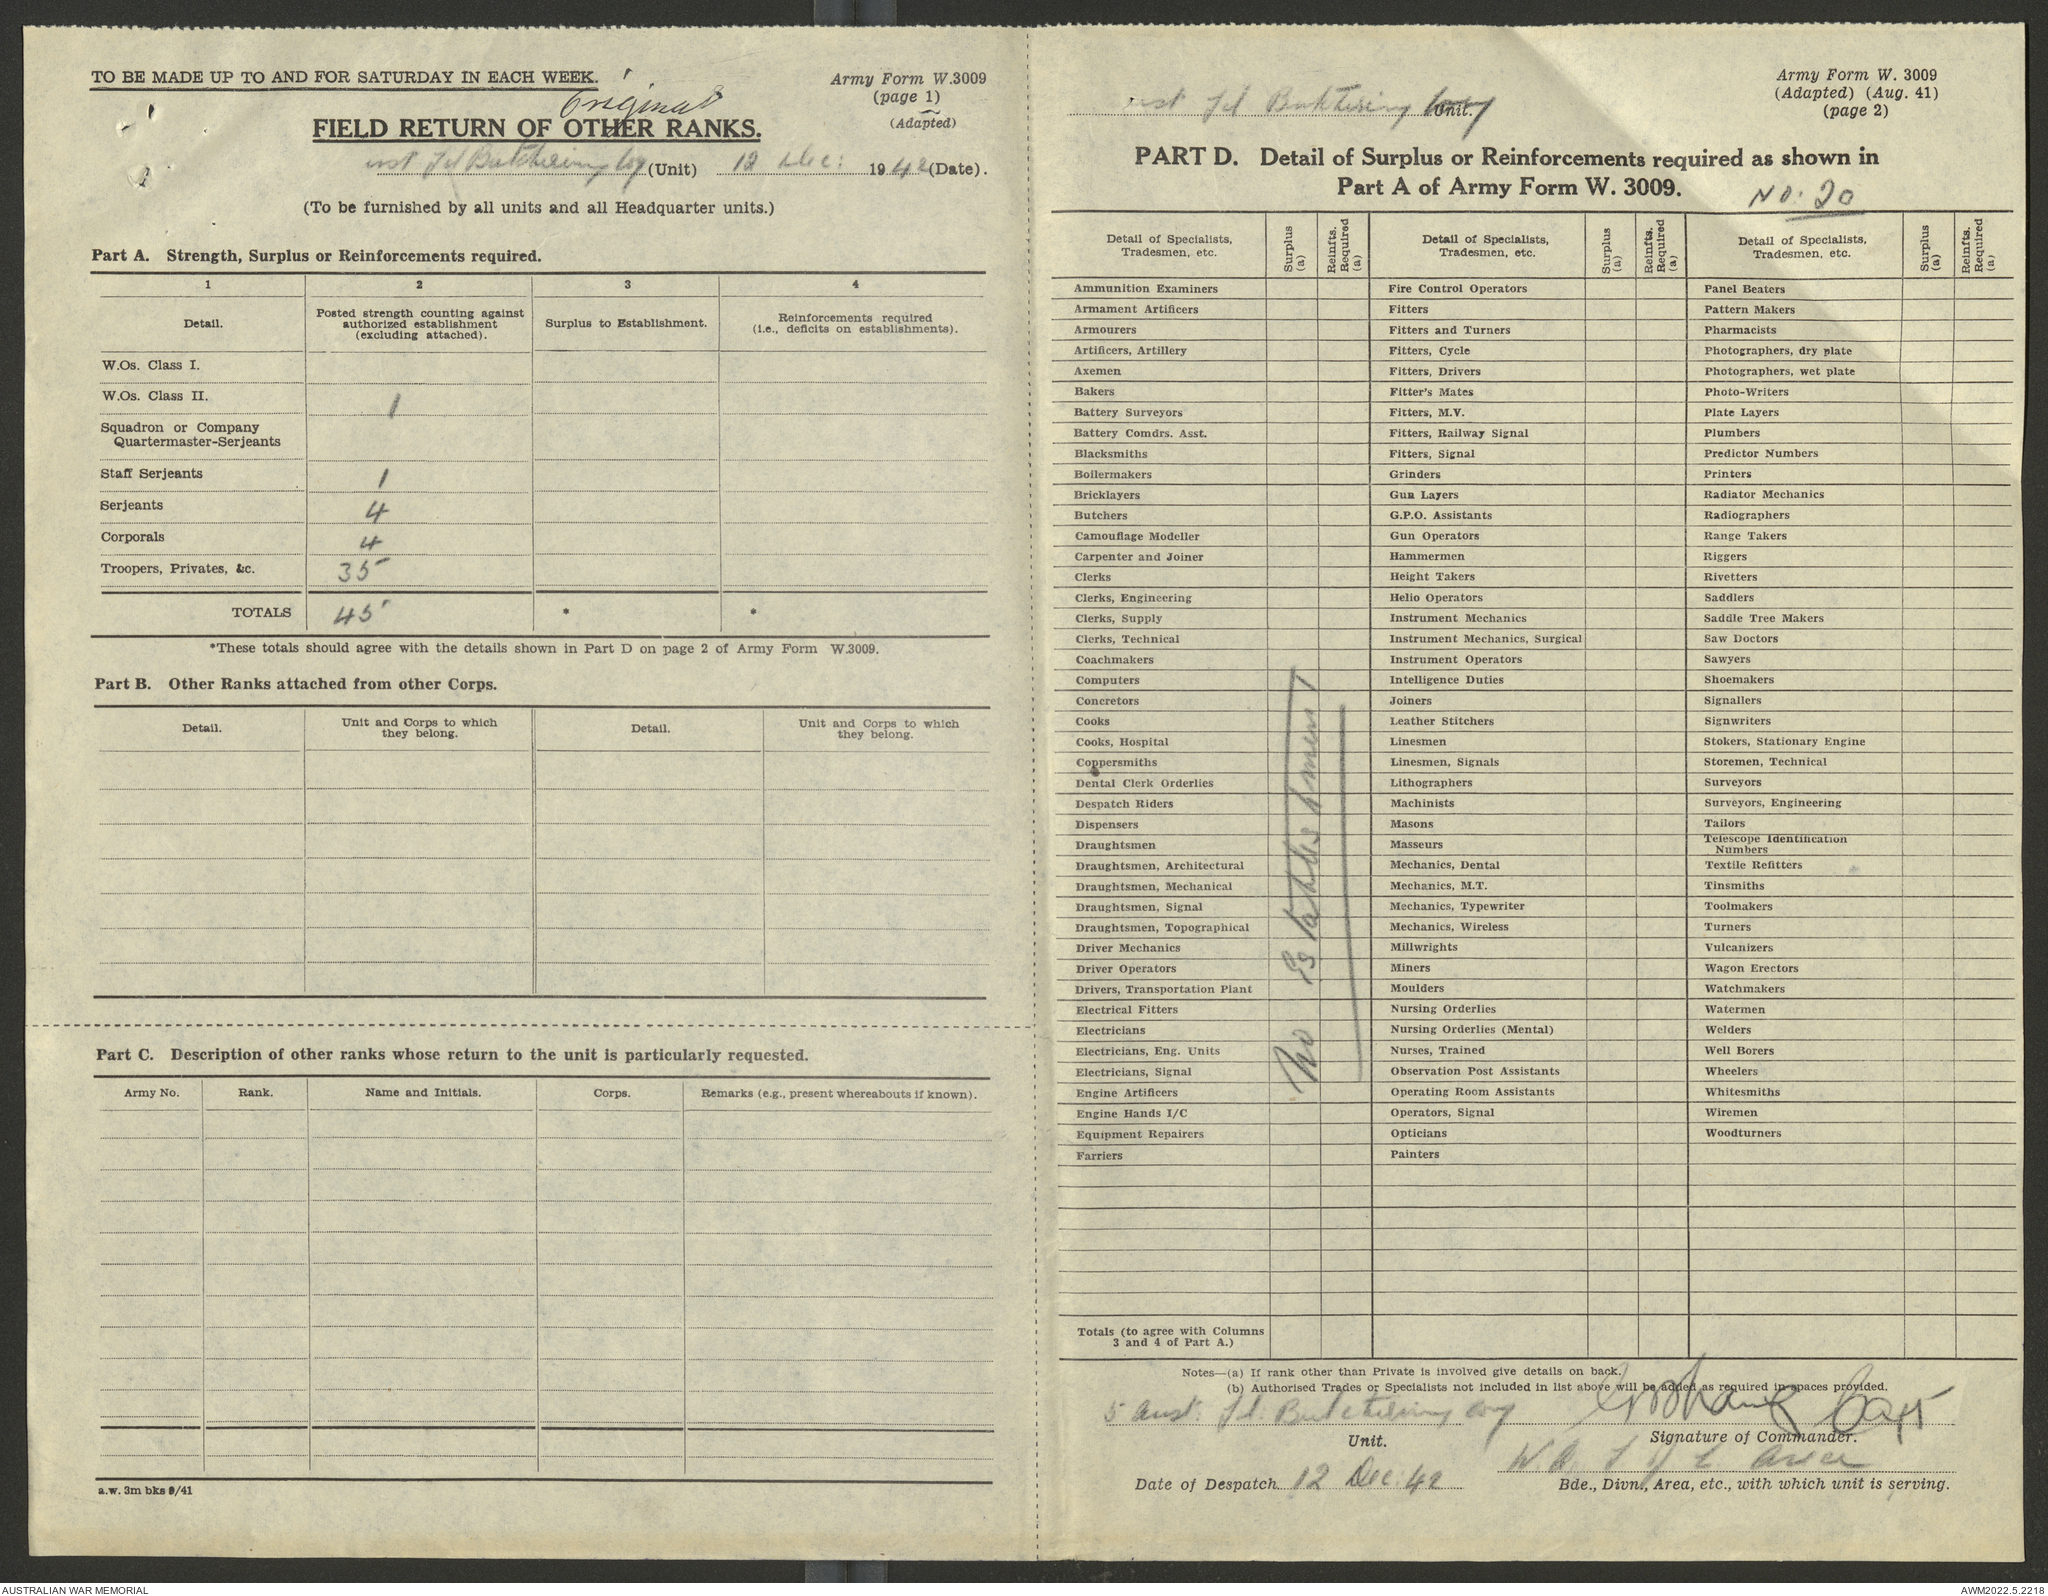 TO BE MADE UP TO AND FOR SATURDAY IN EACH WEEK.
Original
Army Form W.3009
(page 1)
(Adapted)
FIELD RETURN OF OTHER RANKS.
ust Fd Butchering Coy (Unit) 12 Dec: 1942 (Date).
(To be furnished by all units and all Headquarter units.)
Part A. Strength, Surplus or Reinforcements required.
1 2 3 4
Detail. Posted strength counting against authorized establishment (excluding attached). Surplus to Establishment. Reinforcements required (i.e., deficits on establishments).
W.Os. Class I.
W.Os. Class II. 1
Squadron or Company
Quartermaster-Serjeants
Staff Serjeants 1
Serjeants 4
Corporals 4
Troopers, Privates, &c. 35
TOTALS 45 * *
*These totals should agree with the details shown in Part D on page 2 of Army Form W.3009.
Part B. Other Ranks attached from other Corps.
Detail. Unit and Corps to which they belong. Detail. Unit and Corps to which they belong.
Part C. Description of other ranks whose return to the unit is particularly requested.
Army No. Rank. Name and Initials. Corps. Remarks (e.g., present whereabouts if known).
a.w. 3m bks 9/41
ust Fd Butchering Coy Unit.
Army Form W. 3009
(Adapted) (Aug. 41)
(page 2)
PART D. Detail of Surplus or Reinforcements required as shown in
Part A of Army Form W. 3009.
No: 20
Detail of Specialists, Tradesmen, etc. Surplus (a) Reinfts. Required (a) Detail of Specialists, Tradesmen, etc. Surplus (a) Reinfts. Required (a) Detail of Specialists, Tradesmen, etc. Surplus (a) Reinfts. Required (a)
Ammunition Examiners Fire Control Operators Panel Beaters
Armament Artificers Fitters Pattern Makers
Armourers Fitters and Turners Pharmacists
Artificers, Artillery Fitters, Cycle Photographers, dry plate
Axemen Fitters, Drivers Photographers, wet plate
Bakers Fitter's Mates Photo-Writers
Battery Surveyors Fitters, M.V. Plate Layers
Battery Comdrs. Asst. Fitters, Railway Signal Plumbers
Blacksmiths Fitters, Signal Predictor Numbers
Boilermakers Grinders Printers
Bricklayers Gun Layers Radiator Mechanics
Butchers G.P.O. Assistants Radiographers
Camouflage Modeller Gun Operators Range Takers
Carpenter and Joiner Hammermen Riggers
Clerks Height Takers Rivetters
Clerks, Engineering Helio Operators Saddlers
Clerks, Supply Instrument Mechanics Saddle Tree Makers
Clerks, Technical Instrument Mechanics, Surgical Saw Doctors
Coachmakers Instrument Operators Sawyers
Computers Intelligence Duties Shoemakers
Concretors Joiners Signallers
Cooks Leather Stitchers Signwriters
Cooks, Hospital Linesmen Stokers, Stationary Engine
Coppersmiths Linesmen, Signals Storemen, Technical
Dental Clerk Orderlies Lithographers Surveyors
Despatch Riders Machinists Surveyors, Engineering
Dispensers Masons Tailors
Draughtsmen Masseurs Telescope Identification Numbers
Draughtsmen, Architectural Mechanics, Dental Textile Refitters
Draughtsmen, Mechanical Mechanics, M.T. Tinsmiths
Draughtsmen, Signal Mechanics, Typewriter Toolmakers
Draughtsmen, Topographical Mechanics, Wireless Turners
Driver Mechanics Millwrights Vulcanizers
Driver Operators Miners Wagon Erectors
Drivers, Transportation Plant Moulders Watchmakers
Electrical Fitters Nursing Orderlies Watermen
Electricians Nursing Orderlies (Mental) Welders
Electricians, Eng. Units Nurses, Trained Well Borers
Electricians, Signal Observation Post Assistants Wheelers
Engine Artificers Operating Room Assistants Whitesmiths
Engine Hands I/C Operators, Signal Wiremen
Equipment Repairers Opticians Woodturners
Farriers Painters
No Establishment
Totals (to agree with Columns
3 and 4 of Part A.)
Notes—(a) If rank other than Private is involved give details on back.
(b) Authorised Trades or Specialists not included in list above will be added as required in spaces provided.
5 Aust. Fd. Butchering Coy Capt
Unit. Signature of Commander.
W.A. L of C Area
Date of Despatch 12 Dec: 42
Bde., Divn., Area, etc., with which unit is serving.
AUSTRALIAN WAR MEMORIAL
AWM2022.5.2218